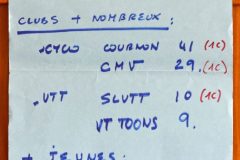 CLUBS + NOMBREUX :
.CYCLO COURNON 41 (1C)
CMV 29. (1C)
.VTT SLUTT 10 (1C)
VTTOONS 9.
+ JEUNES :